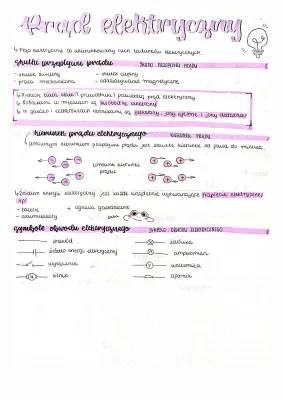 Prąd elektryczny
↳ Prąd elektryczny to uporządkowany ruch ładunków elektrycznych.
skutki przepływu prądu
- skutek świetlny - skutek cieplny
- praca mechaniczna - oddziaływanie magnetyczne
↳ ciała stałe (przewodniki) przewodzą prąd elektryczny
↳ Nośnikami w metalach są swobodne elektrony
↳ W cieczach i elektrolitach nośnikami są jony ujemne i jony dodatnie
kierunek prądu elektrycznego
Umownym kierunkiem przepływu prądu jest zawsze kierunek od plusa do minusa
umowne kierunki
prądu
↳ Źródłem energii elektrycznej jest każde urządzenie wytwarzające napięcie elektryczne
np:
- baterie + ogniwa galwaniczne
- akumulatory
symbole obwodu elektrycznego
przewód
żarówka
źródło energii elektrycznej
A
amperomierz
wyłącznik
V
woltomierz
M
silnik
opornik